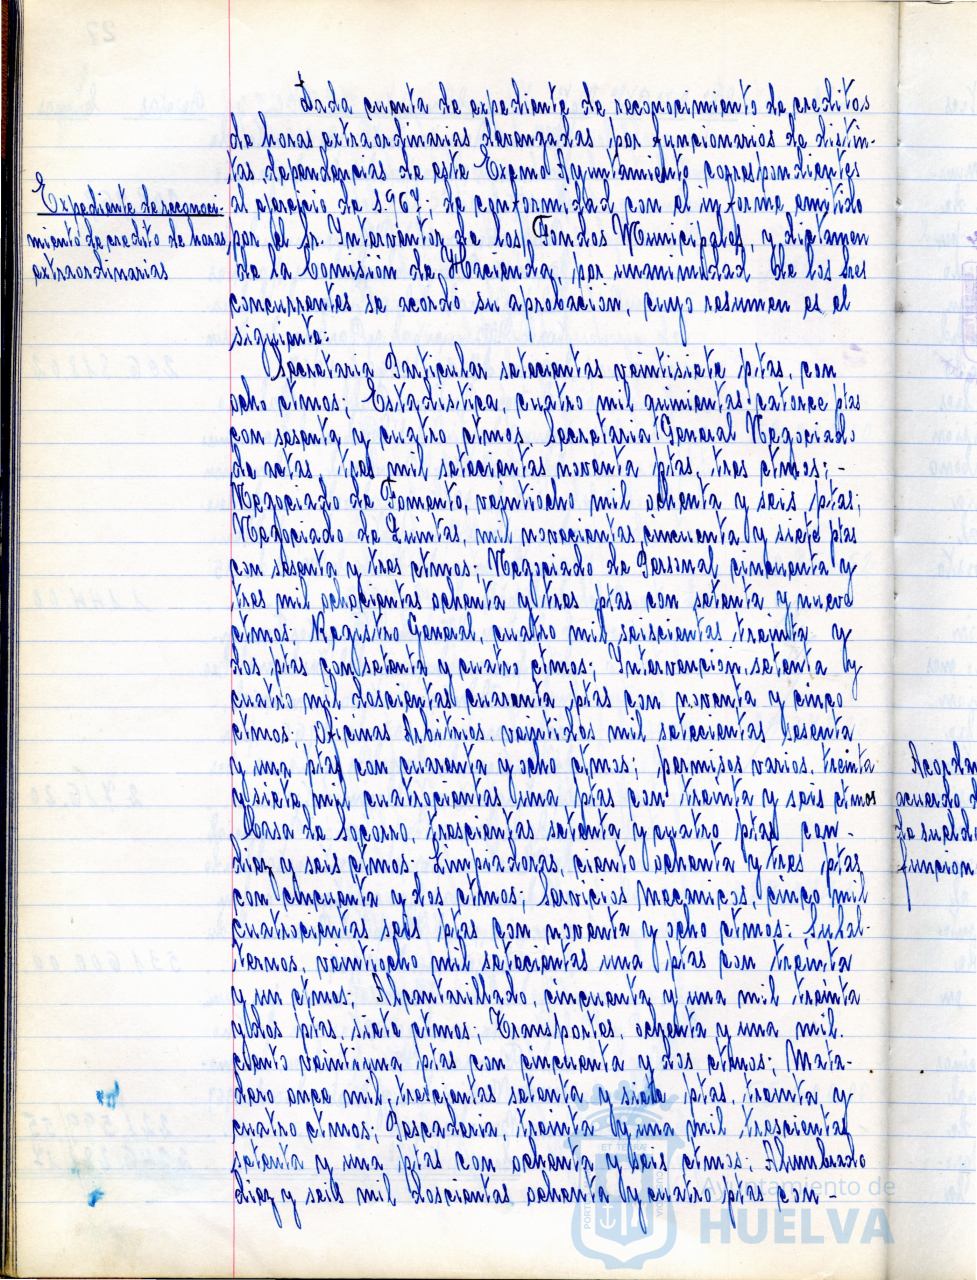 Dada cuenta de expediente de reconocimiento de creditos
de horas extraordinarias devengadas por funcionarios de distin-
tas dependencias de este Excmo Ayuntamiento correspondientes
al ejercicio de 1.967; de conformidad con el informe emitido
por el Sr. Interventor de los Fondos Municipales, y dictamen
de la Comisión de Hacienda, por unanimidad de los Sres
concurrentes se acordó su aprobación, cuyo resumen es el
siguiente:
Expediente de reconoci-
miento de credito de horas
extraordinarias
Secretaria Particular setecientas veintisiete ptas. con
ocho ctmos; Estadistica, cuatro mil quinientas catorce ptas
con sesenta y cuatro ctmos, Secretaria General Negociado
de actas, tres mil setecientas noventa ptas, tres ctmos; -
Negociado de Fomento, veintiocho mil ochenta y seis ptas;
Negociado de Quintas, mil novecientas cincuenta y siete ptas
con sesenta y tres ctmos; Negociado de Personal cincuenta y
tres mil ochocientas ochenta y tres ptas con setenta y nueve
ctmos; Registro General, cuatro mil seiscientas treinta y
dos ptas con setenta y cuatro ctmos; Intervencion, setenta y
cuatro mil doscientas cuarenta ptas con noventa y cinco
ctmos; Oficinas Arbitrios, veintidos mil setecientas sesenta
y una ptas con cuarenta y ocho ctmos; permisos varios, treinta
y siete mil cuatrocientas una ptas con treinta y seis ctmos
Casa de Socorro, trescientas setenta y cuatro ptas con-
diez y seis ctmos; Limpiadoras, ciento ochenta y tres ptas
con cincuenta y dos ctmos; Servicios Mecanicos, cinco mil
cuatrocientas seis ptas con noventa y ocho ctmos; Subal-
ternos, veintiocho mil setecientas una ptas con treinta
y un ctmos; Alcantarillado, cincuenta y una mil treinta
y dos ptas, siete ctmos; Transportes, ochenta y una mil
ciento veintiuna ptas con cincuenta y dos ctmos; Mata-
dero once mil, trescientas setenta y siete ptas, treinta y
cuatro ctmos; Pescaderia, treinta y una mil trescientas
setenta y una ptas con ochenta y seis ctmos; Alumbrado
diez y seis mil doscientas ochenta y cuatro ptas con-
acuerdo d
funcion
Ayuntamiento de
HUELVA